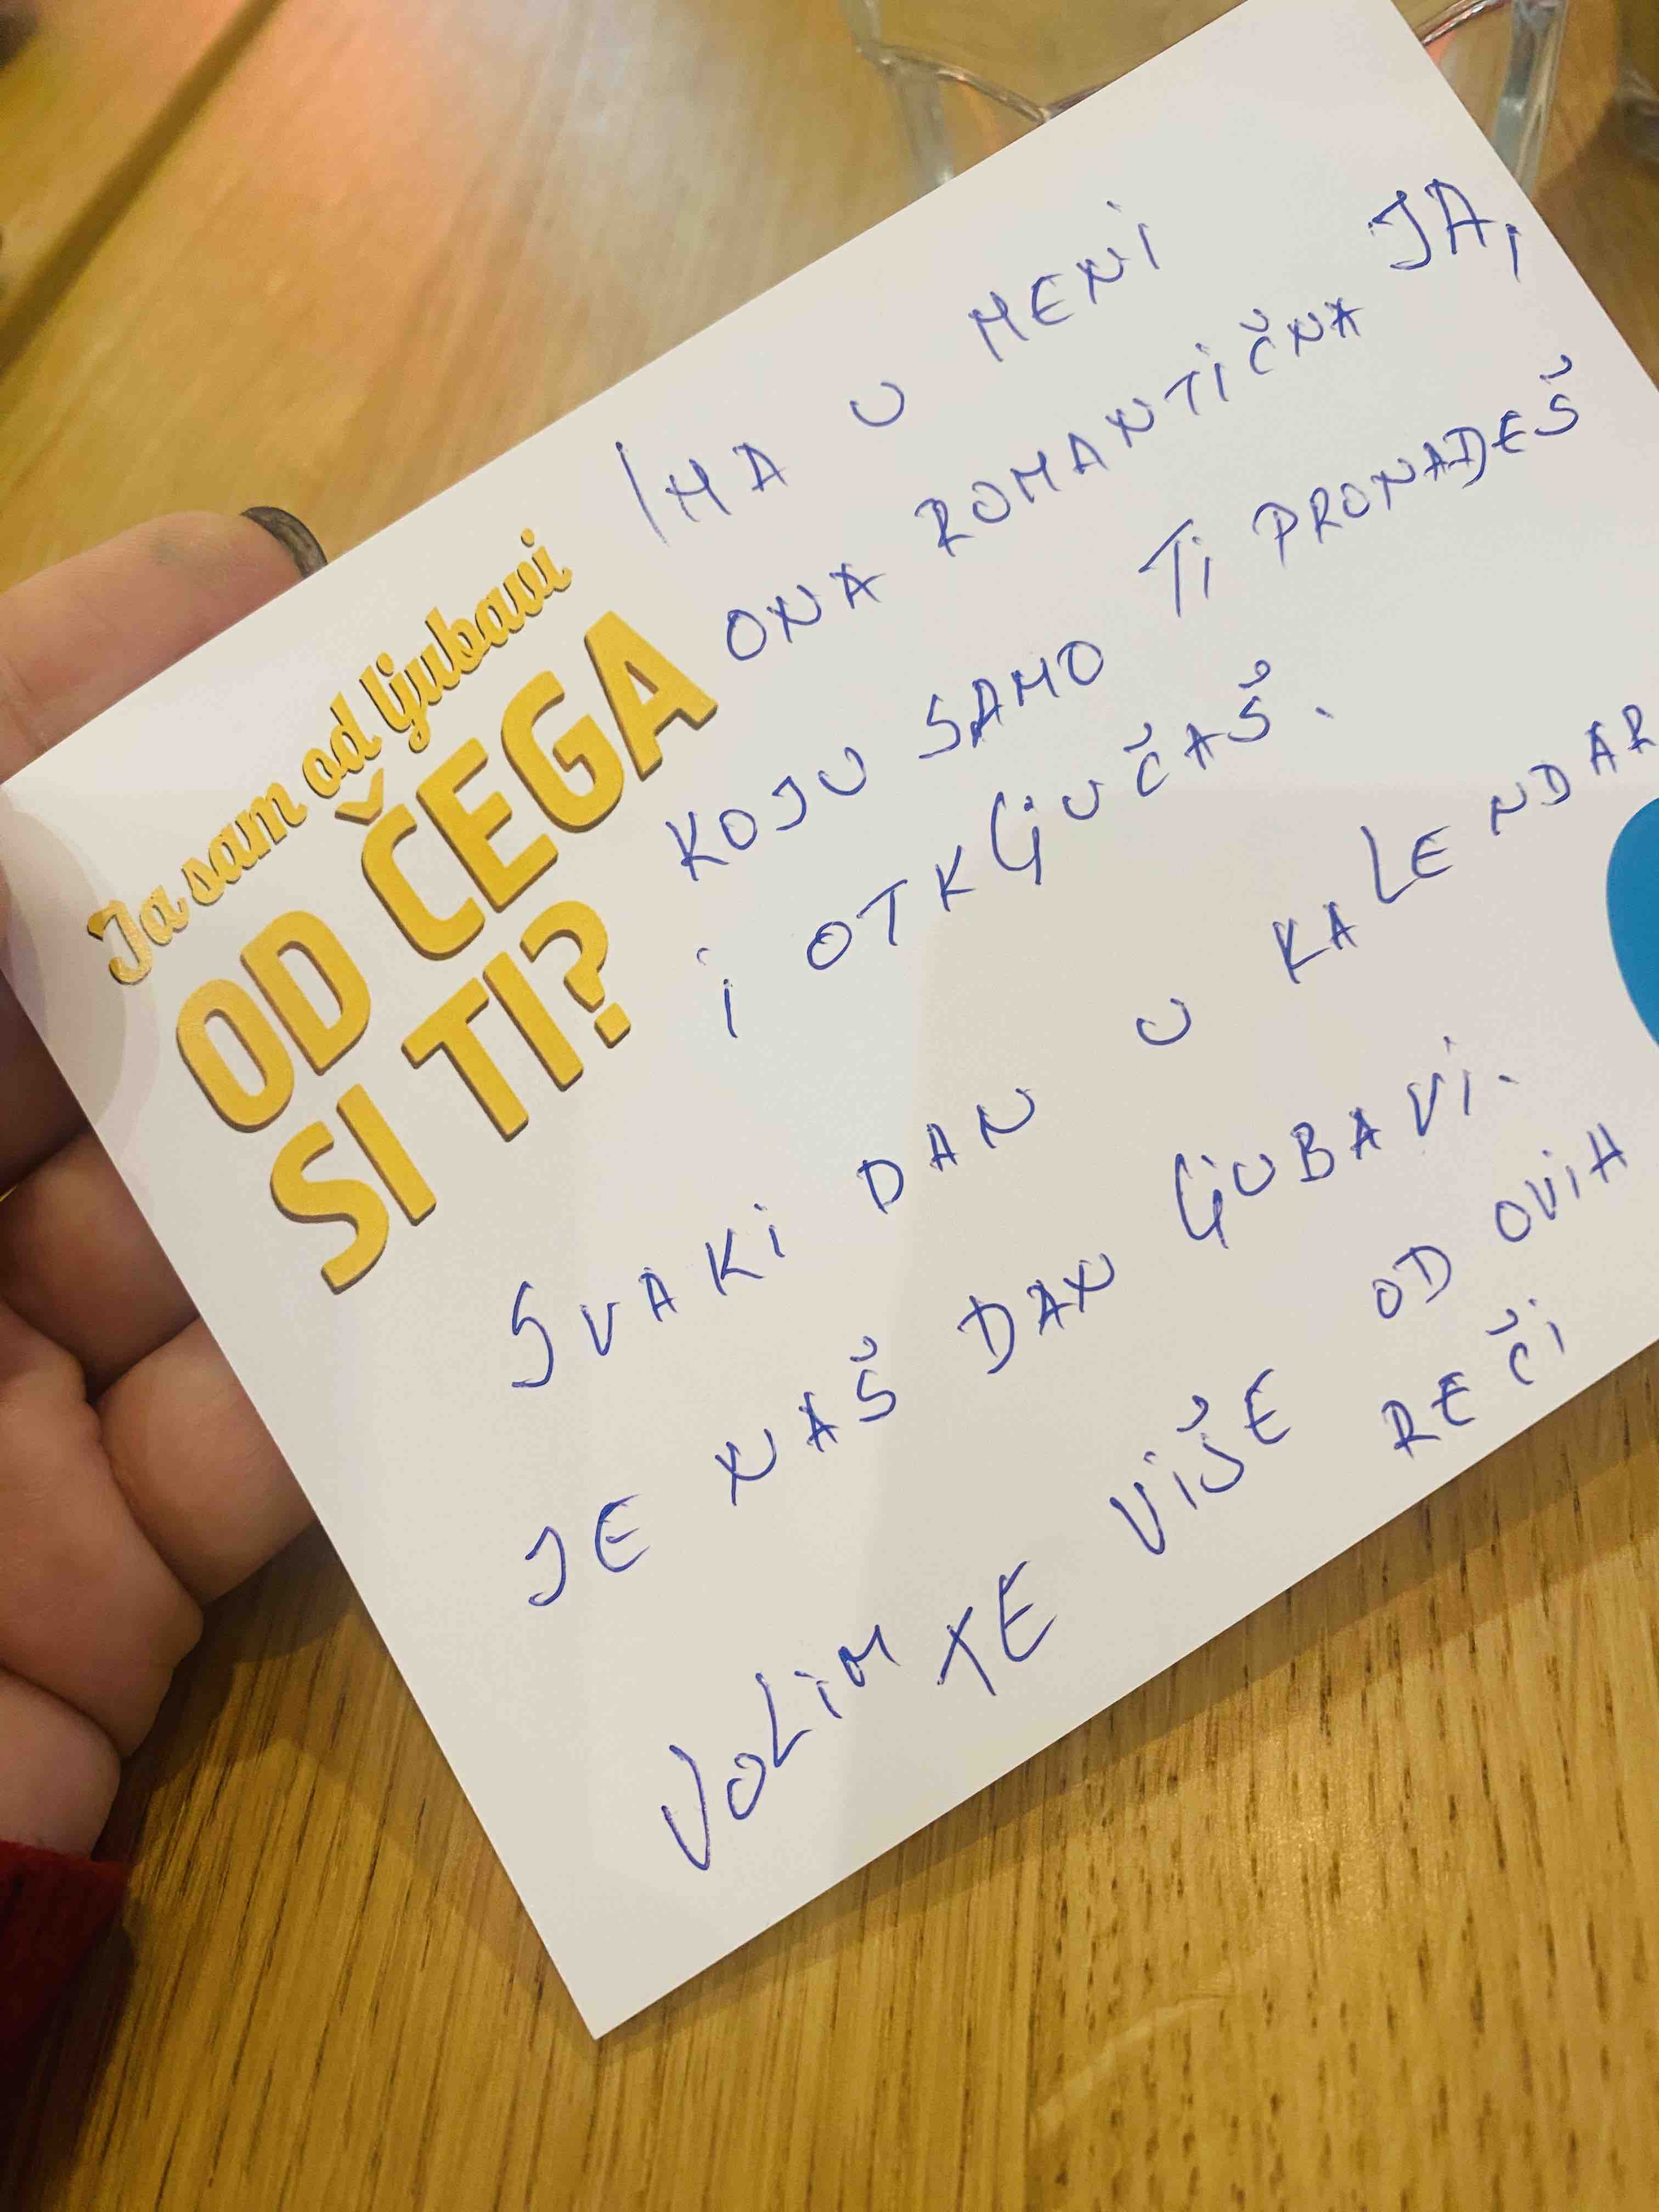 Ja sam od ljubavi
OD ČEGA
SI TI?
IMA U MENI
ONA ROMANTIČNA JA,
KOJU SAMO TI PRONAĐEŠ
I OTKLJUČAŠ.
SVAKI DAN U KALENDAR
JE NAŠ DAN LJUBAVI.
VOLIM TE VIŠE OD OVIH
REČI